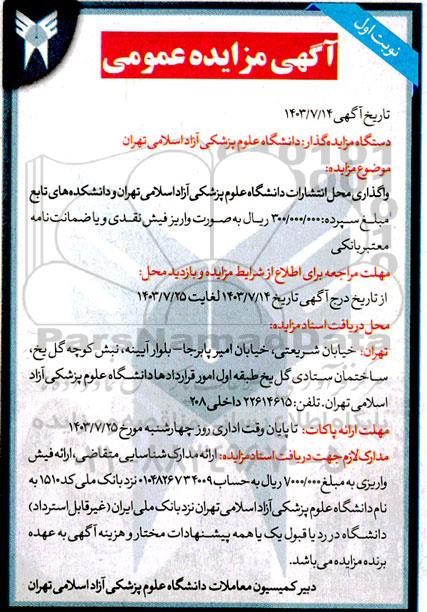 نوبت اول
آگهی مزایده عمومی
تاریخ آگهی ۱۴۰۳/۷/۱۴
دستگاه مزایده‌گذار: دانشگاه علوم پزشکی آزاد اسلامی تهران
موضوع مزایده:
واگذاری محل انتشارات دانشگاه علوم پزشکی آزاد اسلامی تهران و دانشکده‌های تابع
مبلغ سپرده: ۳۰۰/۰۰۰/۰۰۰ ریال به صورت واریز فیش نقدی و یا ضمانت نامه
معتبر بانکی
مهلت مراجعه برای اطلاع از شرایط مزایده و بازدید محل:
از تاریخ درج آگهی تاریخ ۱۴۰۳/۷/۱۴ لغایت ۱۴۰۳/۷/۲۵
محل دریافت اسناد مزایده:
تهران: خیابان شریعتی، خیابان امیر پابرجا- بلوار آیینه، نبش کوچه گل یخ،
ساختمان ستادی گل یخ طبقه اول امور قراردادها دانشگاه علوم پزشکی آزاد
اسلامی تهران. تلفن: ۲۲۶۱۴۶۱۵ داخلی ۲۰۸
مهلت ارائه پاکات: تا پایان وقت اداری روز چهارشنبه مورخ ۱۴۰۳/۷/۲۵
مدارک لازم جهت دریافت اسناد مزایده: ارائه مدارک شناسایی متقاضی، ارائه فیش
واریزی به مبلغ ۷/۰۰۰/۰۰۰ ریال به حساب ۰۱۰۴۸۲۶۷۳۴۰۰۹ نزد بانک ملی کد ۱۵۱۰ به
نام دانشگاه علوم پزشکی آزاد اسلامی تهران نزد بانک ملی ایران (غیر قابل استرداد)
دانشگاه در رد یا قبول یک یا همه پیشنهادات مختار و هزینه آگهی به عهده
برنده مزایده می‌باشد.
دبیر کمیسیون معاملات دانشگاه علوم پزشکی آزاد اسلامی تهران
ParsNamadData